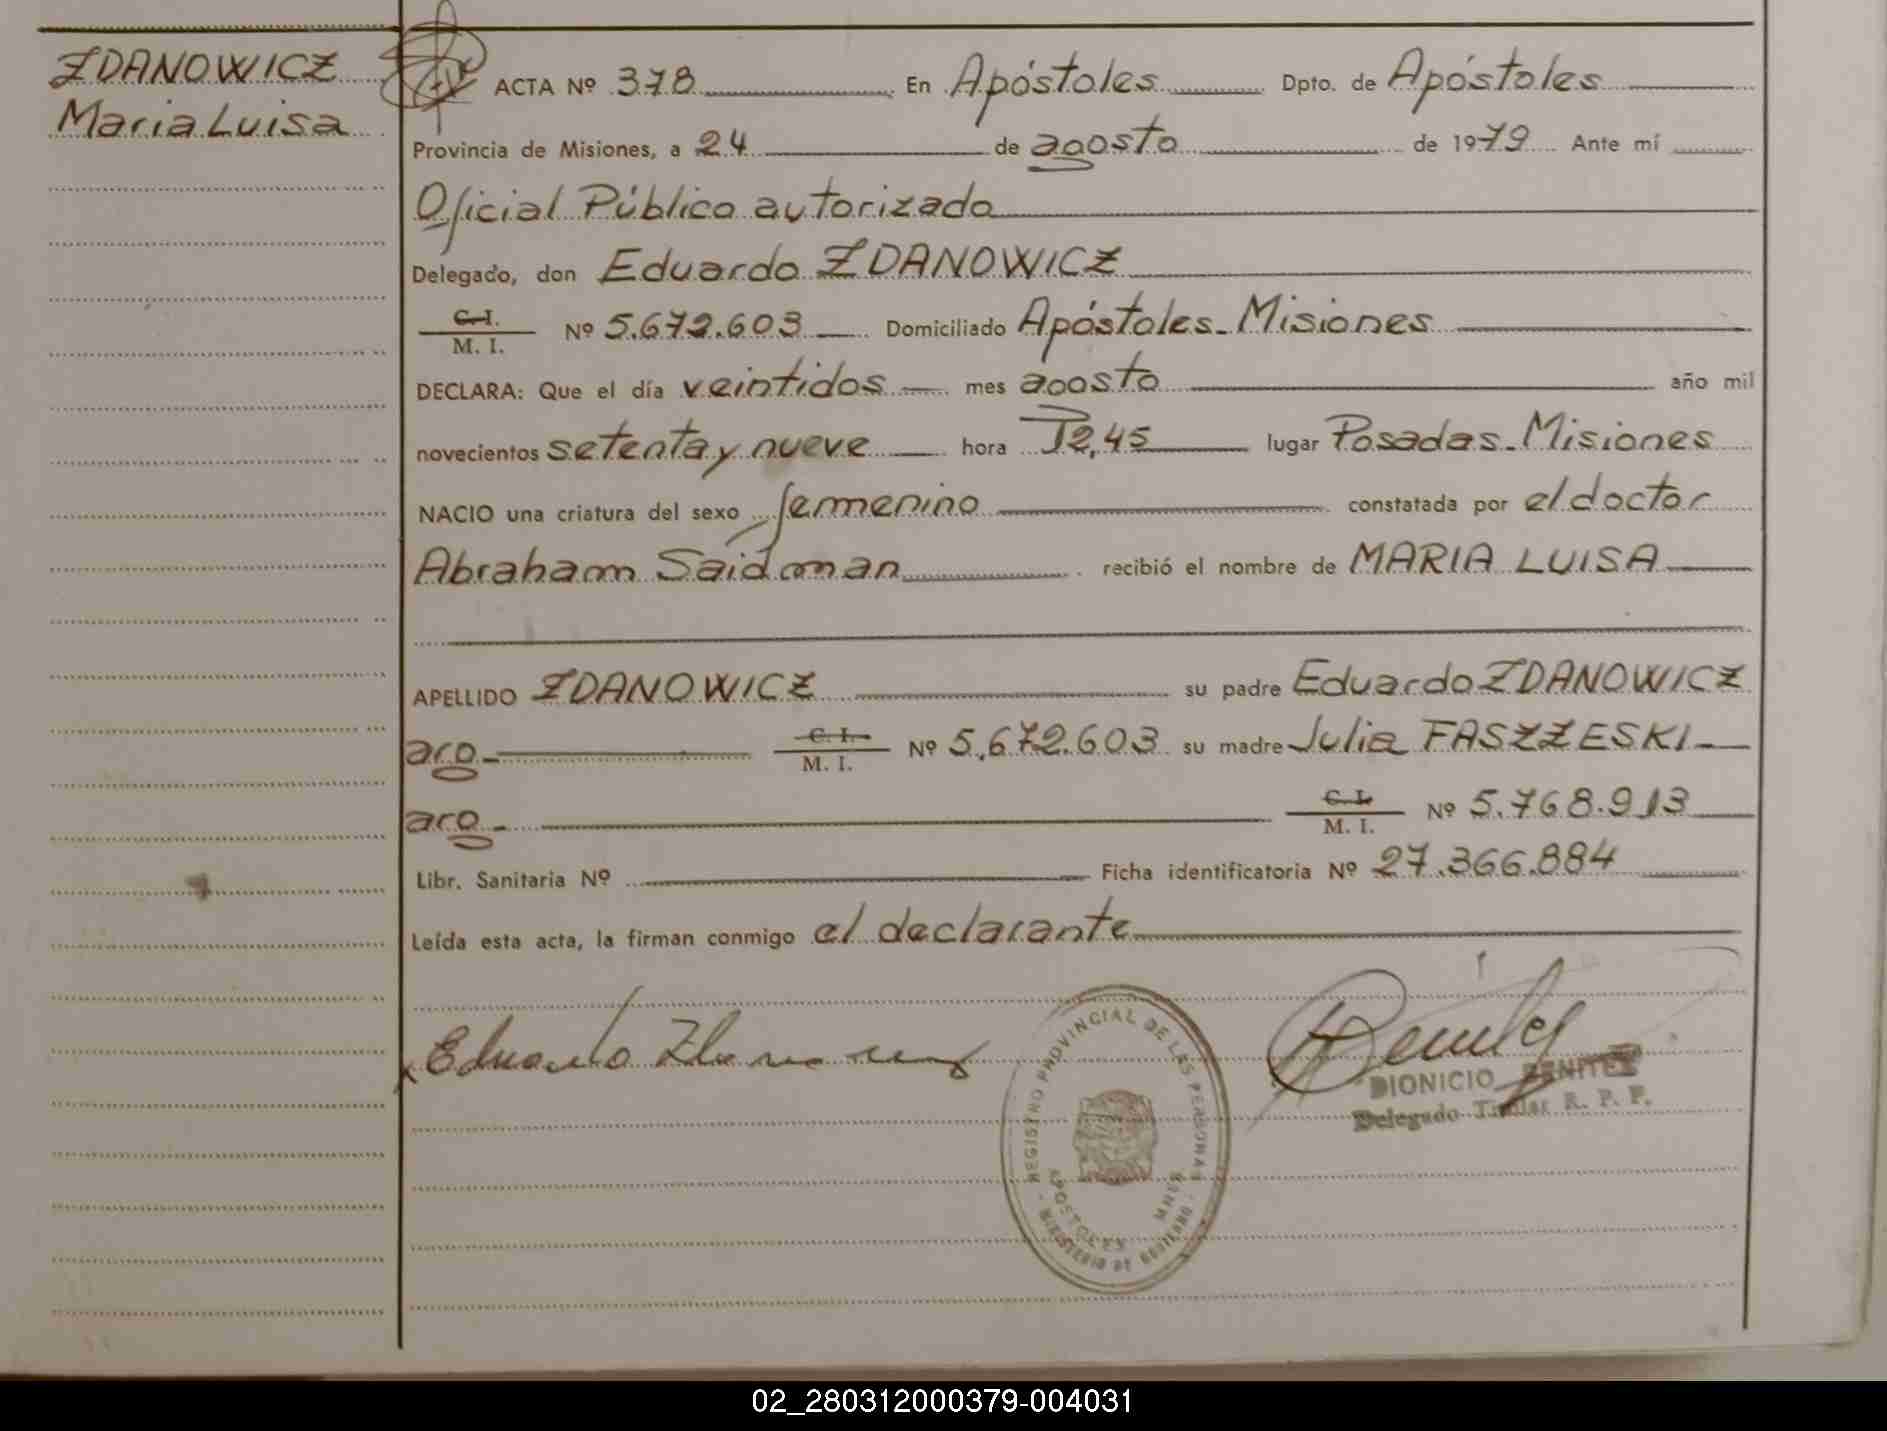 ZDANOWICZ
Maria Luisa
ACTA Nº 378 En Apóstoles Dpto. de Apóstoles
Provincia de Misiones, a 24 de agosto de 1979 Ante mí
Oficial Público autorizado
Delegado, don Eduardo ZDANOWICZ
C. I.
M. I. Nº 5.672.603 Domiciliado Apóstoles - Misiones
DECLARA: Que el día veintidos mes agosto año mil
novecientos setenta y nueve hora 12,45 lugar Posadas - Misiones
NACIO una criatura del sexo femenino constatada por el doctor
Abraham Saidman recibió el nombre de MARIA LUISA
APELLIDO ZDANOWICZ su padre Eduardo ZDANOWICZ
arg - C. I. M. I. Nº 5.672.603 su madre Julia FASZZESKI -
arg - C. I. M. I. Nº 5.768.913
Libr. Sanitaria Nº Ficha identificatoria Nº 27.366.884
Leída esta acta, la firman conmigo el declarante
Eduardo
REGISTRO PROVINCIAL DE LAS PERSONAS
APOSTOLES MNES
MINISTERIO DE GOBIERNO
DIONICIO BENITEZ
Delegado Titular R. P. P.
02_280312000379-004031